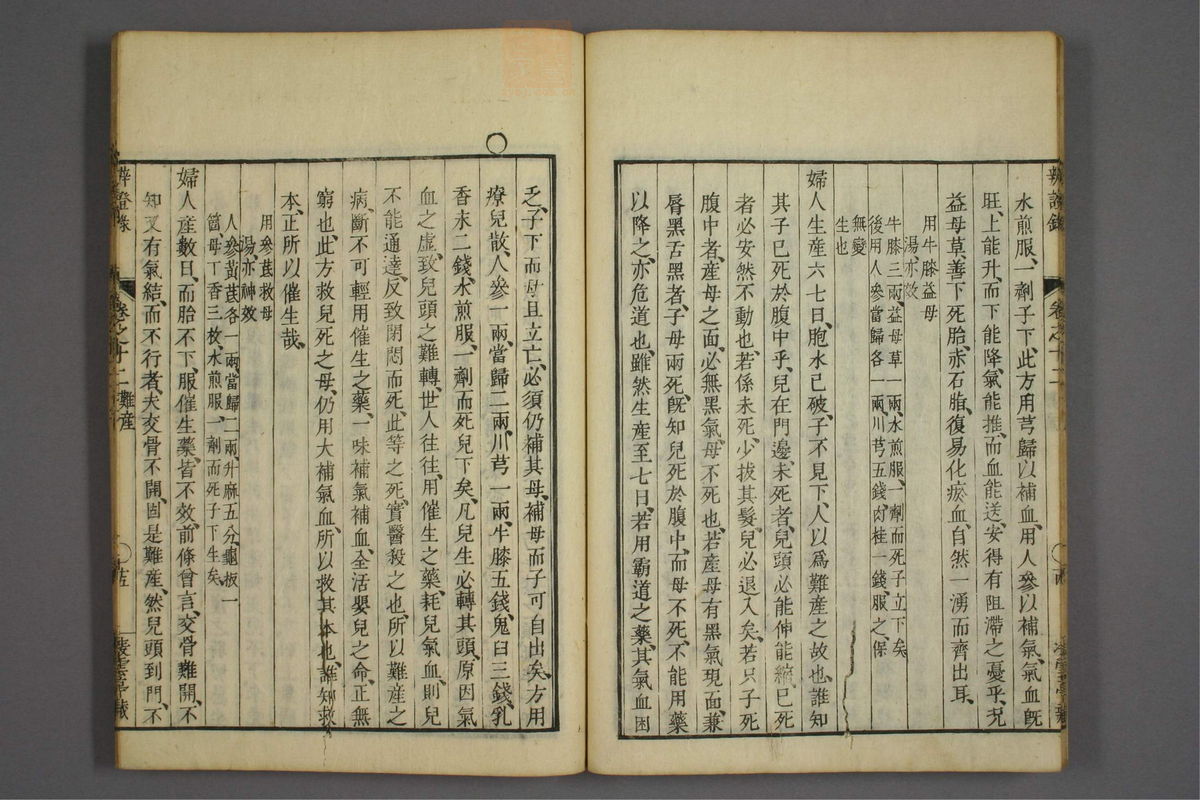 水煎服、一劑子下、此方用芎歸以補血、用人參以補氣、氣血旣
旺、上能升、而下能降、氣能推、而血能送、安得有阻滯之憂乎、况
益母草、善下死胎、赤石脂、復易化瘀血、自然一湧而齊出耳、
用牛膝益母
湯亦效
牛膝三兩、益母草一兩、水煎服、一劑而死子立下矣、
後用人參當歸各一兩、川芎五錢、肉桂一錢、服之、保
無變
生也
婦人生産六七日、胞水已破、子不見下、人以爲難産之故也、誰知
其子已死於腹中乎、兒在門邊、未死者、兒頭必能伸能縮、已死
者必安然不動也、若係未死、少拔其髮、兒必退入矣、若只子死
腹中者、産母之面、必無黑氣、母不死也、若産母有黑氣現面、兼
脣黑舌黑者、子母兩死、旣知兒死於腹中、而母不死、不能用藥
以降之、亦危道也、雖然生産至七日、若用霸道之藥、其氣血困
乏、子下而母且立亡、必須仍補其母、補母而子可自出矣、方用
療兒散、人參一兩、當歸二兩、川芎一兩、牛膝五錢、鬼臼三錢、乳
香末二錢、水煎服、一劑而死兒下矣、凡兒生必轉其頭、原因氣
血之虛、致兒頭之難轉、世人往往、用催生之藥、耗兒氣血、則兒
不能通達、反致閉悶而死、此等之死、實醫殺之也、所以難産之
病、斷不可輕用催生之藥、一味補氣補血、全活嬰兒之命、正無
窮也、此方救兒死之母、仍用大補氣血、所以救其本也、誰知救
本、正所以催生哉、
用參茋救母
湯亦神效
人參黃茋各一兩、當歸二兩、升麻五分、龜板一
箇、母丁香三枚、水煎服、一劑而死子下生矣、
婦人産數日、而胎不下、服催生藥、皆不效、前條曾言、交骨難開、不
知又有氣結、而不行者、夫交骨不開、固是難産、然兒頭到門、不
辨證錄
卷之十二 難産